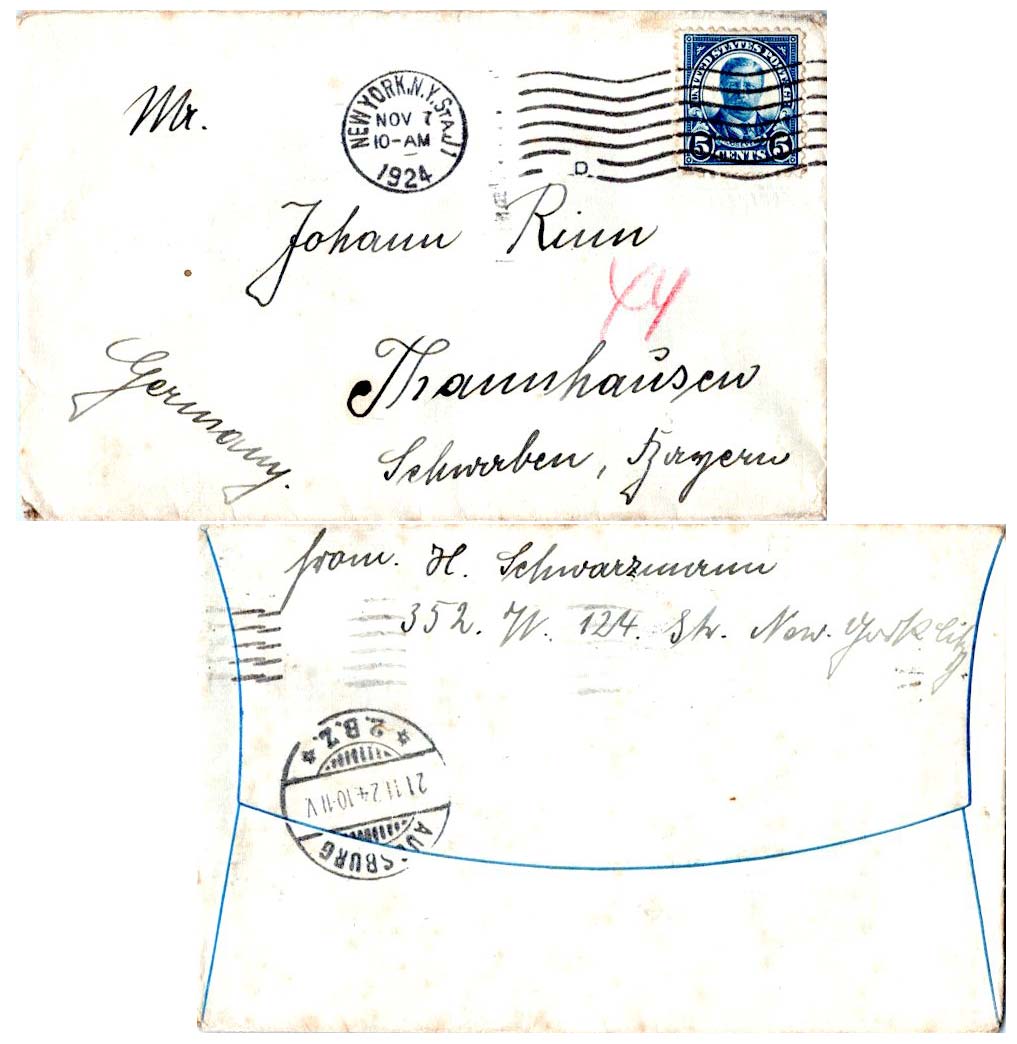 Mr.
NEW YORK, N.Y. STA. J1
NOV 7
10-AM
1924
UNITED STATES POSTAGE
5 CENTS 5
D
Johann Rinn
44
Thannhausen
Schwaben, Bayern
Germany.
from. H. Schwarzmann
352. W. 124. Str. New. York City.
* 2.B.Z. *
21.11.24.10-11V.
AUGSBURG